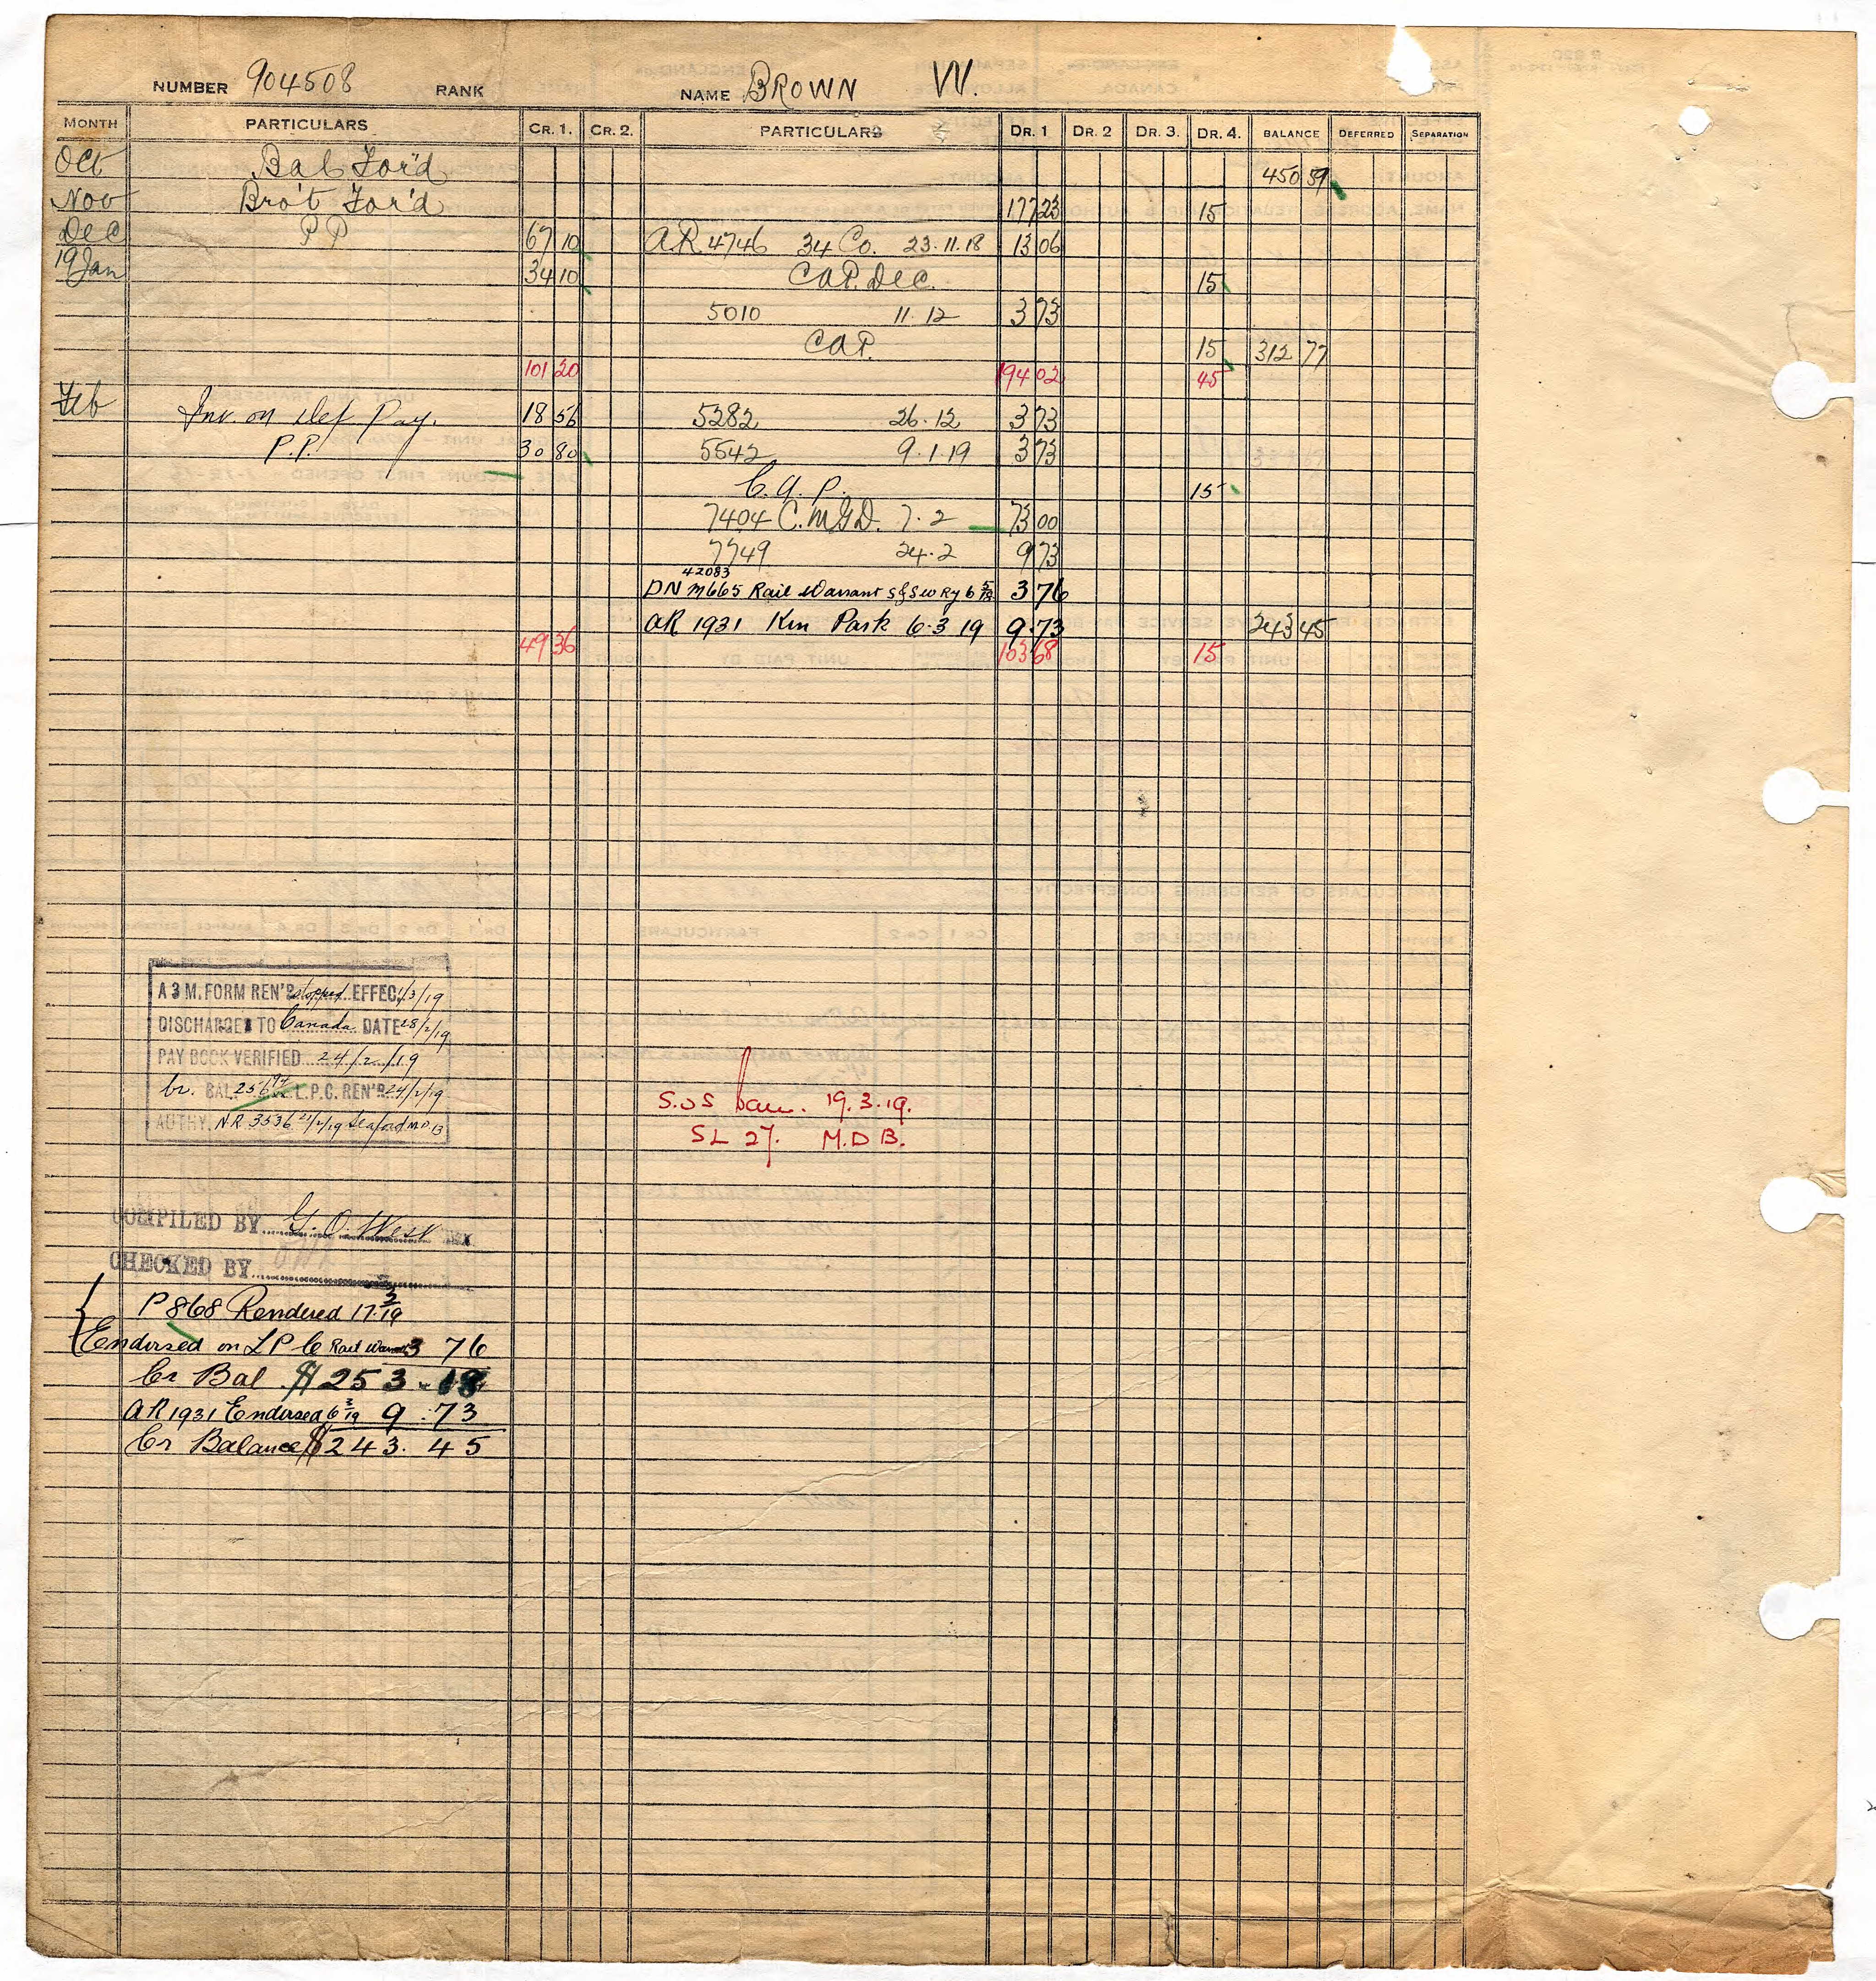 NUMBER 904508 RANK NAME BROWN W.
MONTH PARTICULARS CR. 1. CR. 2. PARTICULARS DR. 1 DR. 2 DR. 3. DR. 4. BALANCE DEFERRED SEPARATION
Oct Bal For'd 450 59
Nov Bro't For'd 177 23 15
Dec PP 67 10 AR 4746 34 Co. 23.11.18 13 06
19 Jan 34 10 CAP. Dec. 15
5010 11.12 3 73
CAP. 15 312 77
101 20 194 02 45
Feb Int. on Def Pay. 18 56 5282 26.12 3 73
P.P. 30 80 5542 9.1.19 3 73
C.A.P. 15
7404 C.M.G.D. 7.2 73 00
7749 24.2 9 73
42083
DN M665 Rail Warrant S&SW Ry 6 3/19 3 76
AR 1931 Kin Park 6.3 19 9.73 243 45
49 36 103 68 15
A 3 M. FORM REN'D stopped EFFEC. 1/3/19
DISCHARGED TO Canada DATE 28/2/19
PAY BOOK VERIFIED 24/2/19
Cr. BAL. 256.94 L.P.C. REN'R 24/2/19
AUTHY. N.R. 3536 21/2/19 Seaford M.D.13
S.O.S 19.3.19.
SL 27. M.D B.
COMPILED BY G. O. West
CHECKED BY
P868 Rendered 17.3/19
Endorsed on LPC Rail Warrant 3 76
Cr Bal $253.18
AR 1931 Endorsed 6 3/19 9.73
Cr Balance $243.45